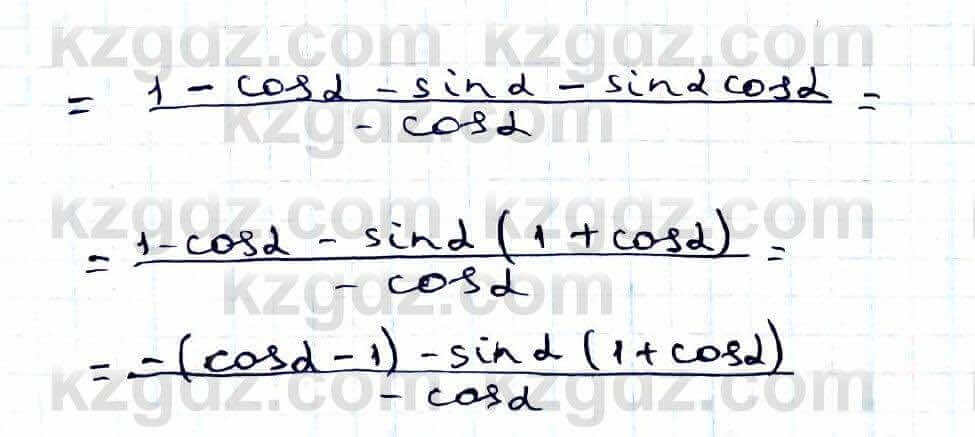 kzgdz.com kzgdz.com
= (1 - cosα - sinα - sinα cosα) / (- cosα) =
kzgdz.com
kzgdz.com kzgdz.com
= (1 - cosα - sinα (1 + cosα)) / (- cosα) =
kzgdz.com
= (-(cosα - 1) - sinα (1 + cosα)) / (- cosα)
kzgdz.com kzgdz.com